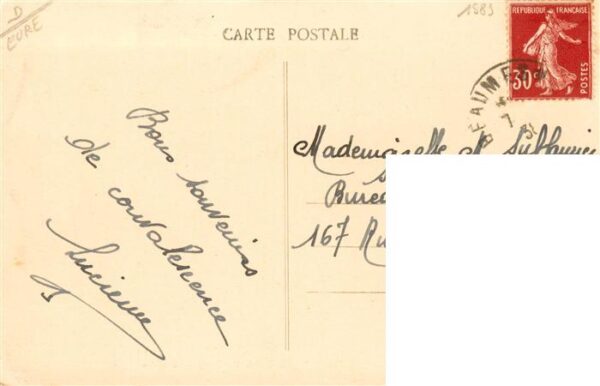 D
EURE
1983
CARTE POSTALE
REPUBLIQUE FRANÇAISE
30c
POSTES
BEAUM
7
Bons souvenirs
de convalescence
Lucienne
Mademoiselle
Bure
167 Ru